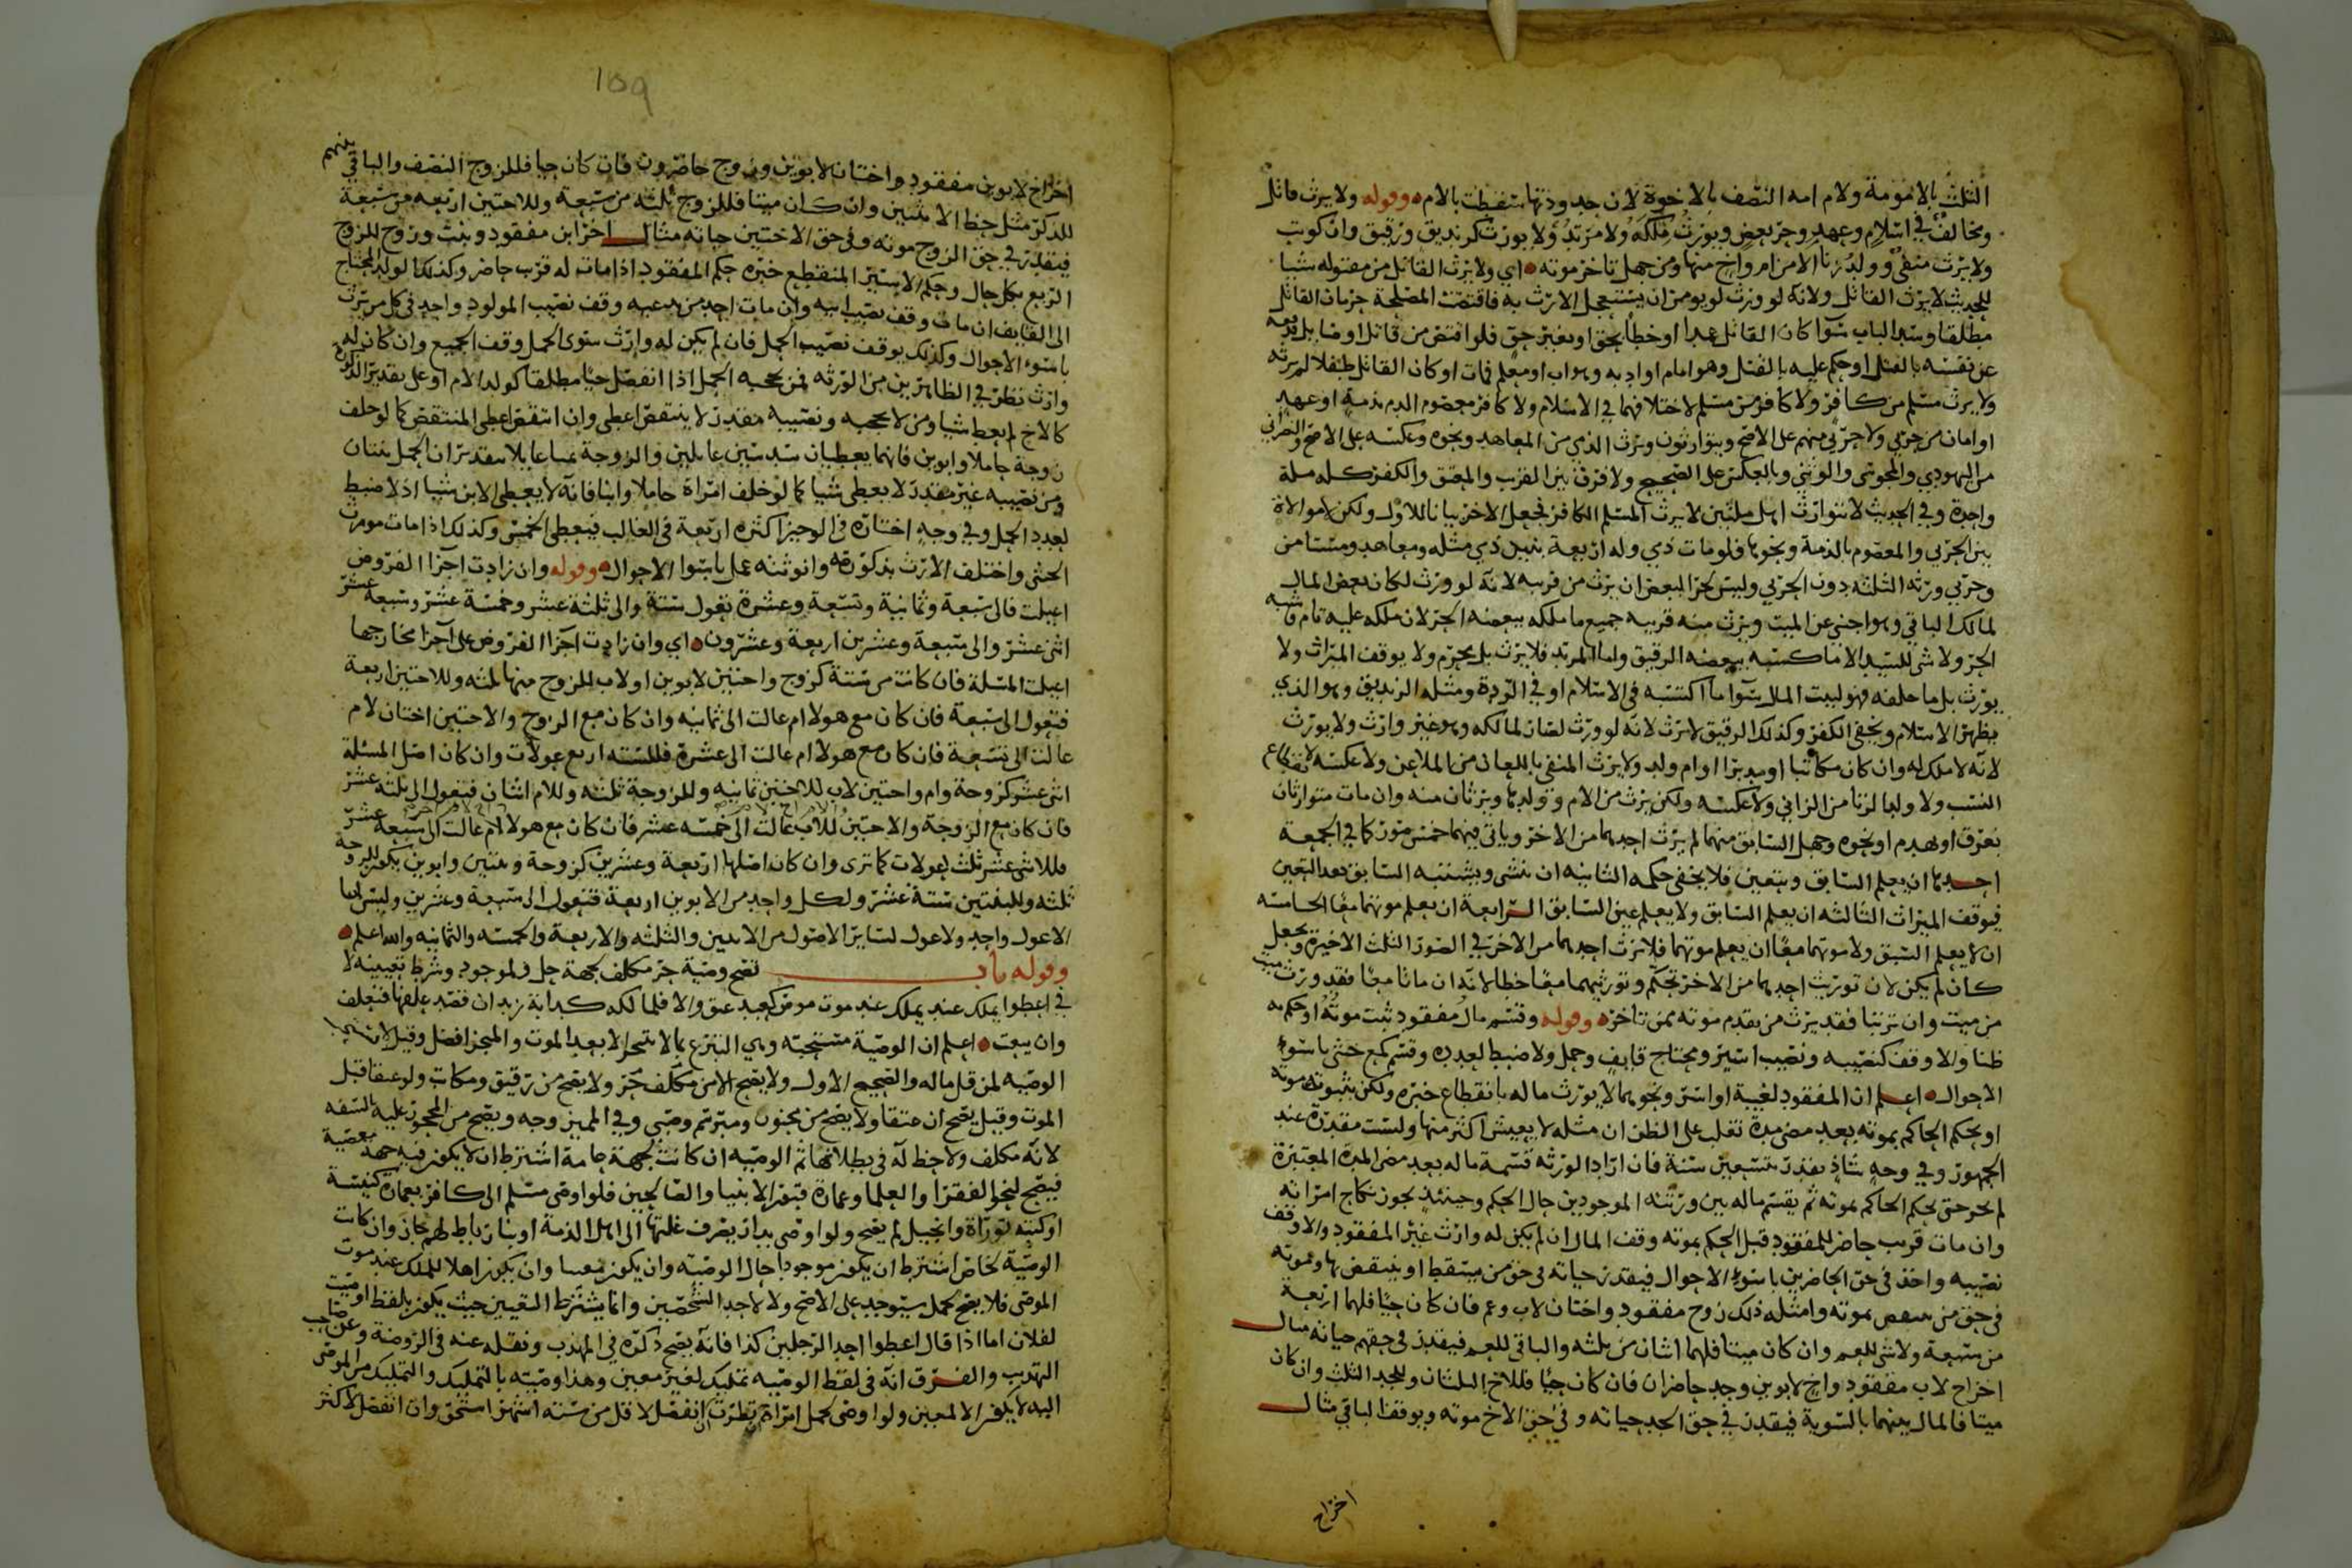 الثلث بالامومة ولام امه النصف بالاخوة لان جدودتها سقطت بالام وقوله ولا يرث قاتل
ومخالف في اسلام وعهد وحر بعض ويورث ملكه ولا مرتد ولا يورث كزنديق ورقيق وان كوتب
ولا يرث منفي وولد زنا الا من ام واخ منها ومن جهل تاخر موته اي ولا يرث القاتل من مقتوله شيا
للحديث لا يرث القاتل ولانه لو ورث لم يومن ان يستعجل الارث به فاقتضت المصلحة حرمان القاتل
مطلقا وسد الباب سوا كان القاتل عمدا او خطأ بحق او بغير حق فلو اقتص من قاتل او صايل
عن نفسه بالقتل او حكم عليه بالقتل وهو امام او ادبه وهو اب او معلم فمات او كان القاتل طفلا لم يرثه
ولا يرث مسلم من كافر ولا كافر من مسلم لاختلافهما في الاسلام ولا كافر معصوم الدم بذمة او عهد
او امان من حربي ولا حربي منهم على الاصح ويتوارثون ويرث الذمي من المعاهد ونحوه وعكسه على الاصح والنصراني
من اليهودي والمجوسي والوثني وبالعكس على الصحيح ولا فرق بين القرب والمعتق والكفر كله ملة
واحدة وفي الحديث لا يتوارث اهل ملتين لا يرث المسلم الكافر فجعل الاخر بيانا للاول ولكن لا موالاة
بين الحربي والمعصوم بالذمة ونحوها فلو مات ذمي وله اربعة بنين ذمي مثله ومعاهد ومستامن
وحربي ورثه الثلثه دون الحربي وليس لحر البعض ان يرث من قريبه لانه لو ورث لكان بعض المال
لمالك الباقي وهو اجنبي عن الميت ويرث منه قريبه جميع ما ملكه ببعضه الحر لان ملكه عليه تام فاشبه
الحر ولا شي للسيد الا ما كسبه ببعضه الرقيق واما المرتد فلا يرث بل يحرم ولا يوقف الميراث ولا
يورث بل ما خلفه فهو لبيت المال سوا ما اكتسبه في الاسلام او في الردة ومثله الزنديق وهو الذي
يظهر الاسلام ويخفي الكفر وكذلك الرقيق لا يرث لانه لو ورث لكان لمالكه وهو غير وارث ولا يورث
لانه لا ملك له وان كان مكاتبا او مدبرا او ام ولد ولا يرث المنفي باللعان من الملاعن ولا عكسه لانقطاع
النسب ولا ولد الزنا من الزاني ولا عكسه ولكن يرث من الام وولدها ويرثان منه وان مات متوارثان
بغرق او بهدم او نحوه وجهل السابق منهما لم يرث احدهما من الاخر وياتي فيهما خمس صور كما في الجمعة
احدها ان يعلم السابق ويتعين فلا يخفى حكمه الثانيه ان ينسى ويشتبه السابق بعد التعين
فيوقف الميراث الثالثه ان يعلم السابق ولا يعلم عين السابق الرابعة ان يعلم موتهما معا الخامسه
ان لا يعلم السبق ولا موتهما معا ان يعلم موتهما فلا يرث احدهما من الاخر في الصور الثلث الاخيرة ويجعل
كان لم يكن لان توريث احدهما من الاخر تحكم وتوريثهما معا خطا لانه ان ماتا معا فقد ورث ميت
من ميت وان ترتبا فقد يرث من تقدم موته ممن تاخر وقوله وقسم مال مفقود ثبت موته او حكم به
ظنا والا وقف كنصيبه ونصيب اسير ومحتاج قايف وحمل ولا ضبط لعدده وقسم كمع خنثى باسوإ
الاحوال اعلم ان المفقود لغيبة او اسر ونحوهما لا يورث ماله بانقطاع خبره ولكن بثبوت موته
او بحكم الحاكم بموته بعد مضي مدة تغلب على الظن ان مثله لا يعيش اكثر منها وليست مقدرة عند
الجمهور وفي وجه شاذ تقدر بتسعين سنة فان اراد الورثه قسمة ماله بعد مضي المدة المعتبرة
لم يجز حتى يحكم الحاكم بموته ثم يقسم ماله بين ورثته الموجودين حال الحكم وحينئذ يجوز نكاح امراته
وان مات قريب حاضر للمفقود قبل الحكم بموته وقف المال ان لم يكن له وارث غير المفقود والا وقف
نصيبه واخذ في حق الحاضرين باسوإ الاحوال فيقدر حياته في حق من يسقط او ينقص بها وموته
في حق من ينقص بموته وامثله ذلك زوج مفقود واختان لاب وعم فان كان حيا فلهما اربعة
من سبعة ولا شي للعم وان كان ميتا فلهما اثنان من ثلثه والباقي للعم فيقدر في حقهم حياته مثال
اخراخ لاب مفقود واخ لابوين وجد حاضران فان كان حيا فللاخ الثلثان وللجد الثلث وان كان
ميتا فالمال بينهما بالسوية فيقدر في حق الجد حياته وفي حق الاخ موته ويوقف الباقي مثال
اخراخ
159
اخراخ لابوين مفقود واختان لابوين وزوج حاضرون فان كان حيا فللزوج النصف والباقي بينهم
للذكر مثل حظ الانثيين وان كان ميتا فللزوج ثلثه من سبعة وللاختين اربعه من سبعة
فيقدر في حق الزوج موته وفي حق الاختين حياته مثال اخرابن مفقود وبنت وزوج للزوج
الربع بكل حال وحكم الاسير المنقطع خبره حكم المفقود اذا مات له قريب حاضر وكذلك الولد المحتاج
الى القايف ان مات وقف نصيب ابيه وان مات احد من مدعيه وقف نصيب المولود واحد في كل من يرث
باسوء الاحوال وكذلك يوقف نصيب الحمل فان لم يكن له وارث سوى الحمل وقف الجميع وان كان له
وارث نظر في الظاهرين من الورثه فمن يحجبه الحمل اذا انفصل حيا مطلقا كولد الام او على تقدير الذكورة
كالاخ لم يعط شيا ومن لا يحجبه ونصيبه مقدر لا ينتقص اعطى وان انتقص اعطى المنتقص كما لو خلف
زوجة حاملا وابوين فانهما يعطيان سدسين عايلين والزوجة ثمنا عايلا بتقدير ان الحمل بنتان
ومن نصيبه غير مقدر لا يعطى شيا كما لو خلف امراة حاملا وابنا فانه لا يعطى الابن شيا اذ لا ضبط
لعدد الحمل وفي وجه اختاره في الوجيز اكثره اربعة في الغالب فيعطى الخمس وكذلك اذا مات مورث
الخنثى واختلف الارث بذكورته وانوثته عمل باسوا الاحوال وقوله وان زادت اجزا الفروض
اعيلت فالى سبعة وثمانية وتسعة وعشرة تعول ستة والى ثلثة عشر وخمسة عشر وسبعة عشر
اثنى عشر والى سبعة وعشرين اربعة وعشرون اي وان زادت اجزا الفروض على اجزا مخارجها
اعيلت المسلة فان كانت من ستة كزوج واختين لابوين او لاب للزوج منها ثلثه وللاختين اربعة
فتعول الى سبعة فان كان مع هولا ام عالت الى ثمانيه وان كان مع الزوج والاختين اختان لام
عالت الى تسعة فان كان مع هولا ام عالت الى عشرة فللسته اربع عولات وان كان اصل المسئلة
اثنى عشر كزوجة وام واختين لاب للاختين ثمانيه وللزوجة ثلثه وللام اثنان فتعول الى ثلثه عشر
فان كان مع الزوجة والاختين للاب عالت الى خمسه عشر فان كان مع هولا ام عالت الى سبعة عشر
فللاثنى عشر ثلث عولات كما ترى وان كان اصلها اربعة وعشرين كزوجة وبنتين وابوين يكون للزوجة
ثلثه وللبنتين ستة عشر ولكل واحد من الابوين اربعة فتعول الى سبعة وعشرين وليس لها
الا عول واحد ولا عول لساير الاصول من الاثنين والثلثه والاربعة والخمسه والثمانيه والله اعلم
وقوله باب تصح وصية حر مكلف لجهة حل ولموجود وشرط تعيينه لا
في اعطوا يملك عند يملك عند موت موص كعبد عتق والا فلمالكه كدابة زيد ان قصد علفها فتعلف
وان بيعت اعلم ان الوصية مستحبة وهي التبرع بما لا يتنجز الا بعد الموت والمنجز افضل وقيل لا تستحب
الوصيه لمن قل ماله والصحيح الاول ولا يصح الا من مكلف حر ولا يصح من رقيق ومكاتب ولو عتقا قبل
الموت وقيل يصح ان عتقا ولا يصح من مجنون ومبرسم وصبي وفي المميز وجه ويصح من المحجور عليه بالسفه
لانه مكلف ولا حظ له في بطلانها ثم الوصيه ان كانت لجهة عامة اشترط ان لا يكون فيه جهة معصية
فيصح لنحو الفقرا والعلما وعمارة قبور الانبيا والصالحين فلو اوصى مسلم الى كافر بعمارة كنيسة
او كتبه توراة وانجيل لم يصح ولو اوصى بدار يصرف غلتها الى اهل الذمة او بنا رباط لهم جاز وان كانت
الوصية لخاص اشترط ان يكون موجودا حال الوصيه وان يكون معينا وان يكون اهلا للملك عند موت
الموصى فلا يصح لحمل سيوجد على الاصح ولا لاحد الشخصين وانما يشترط التعيين حيث يكون بلفظ اوصيت
لفلان اما اذا قال اعطوا احد الرجلين كذا فانه يصح ذكره في المهذب ونقله عنه في الروضة وعن صاحب
التهذيب والفرق انه في لفظ الوصيه تمليك لغير معين وهذا وصيته بالتمليك والتمليك من الموصى
اليه لا يكون الا لمعين ولو اوصى لحمل امراة نظرت ان انفصل لاقل من سته اشهر استحق وان انفصل لاكثر